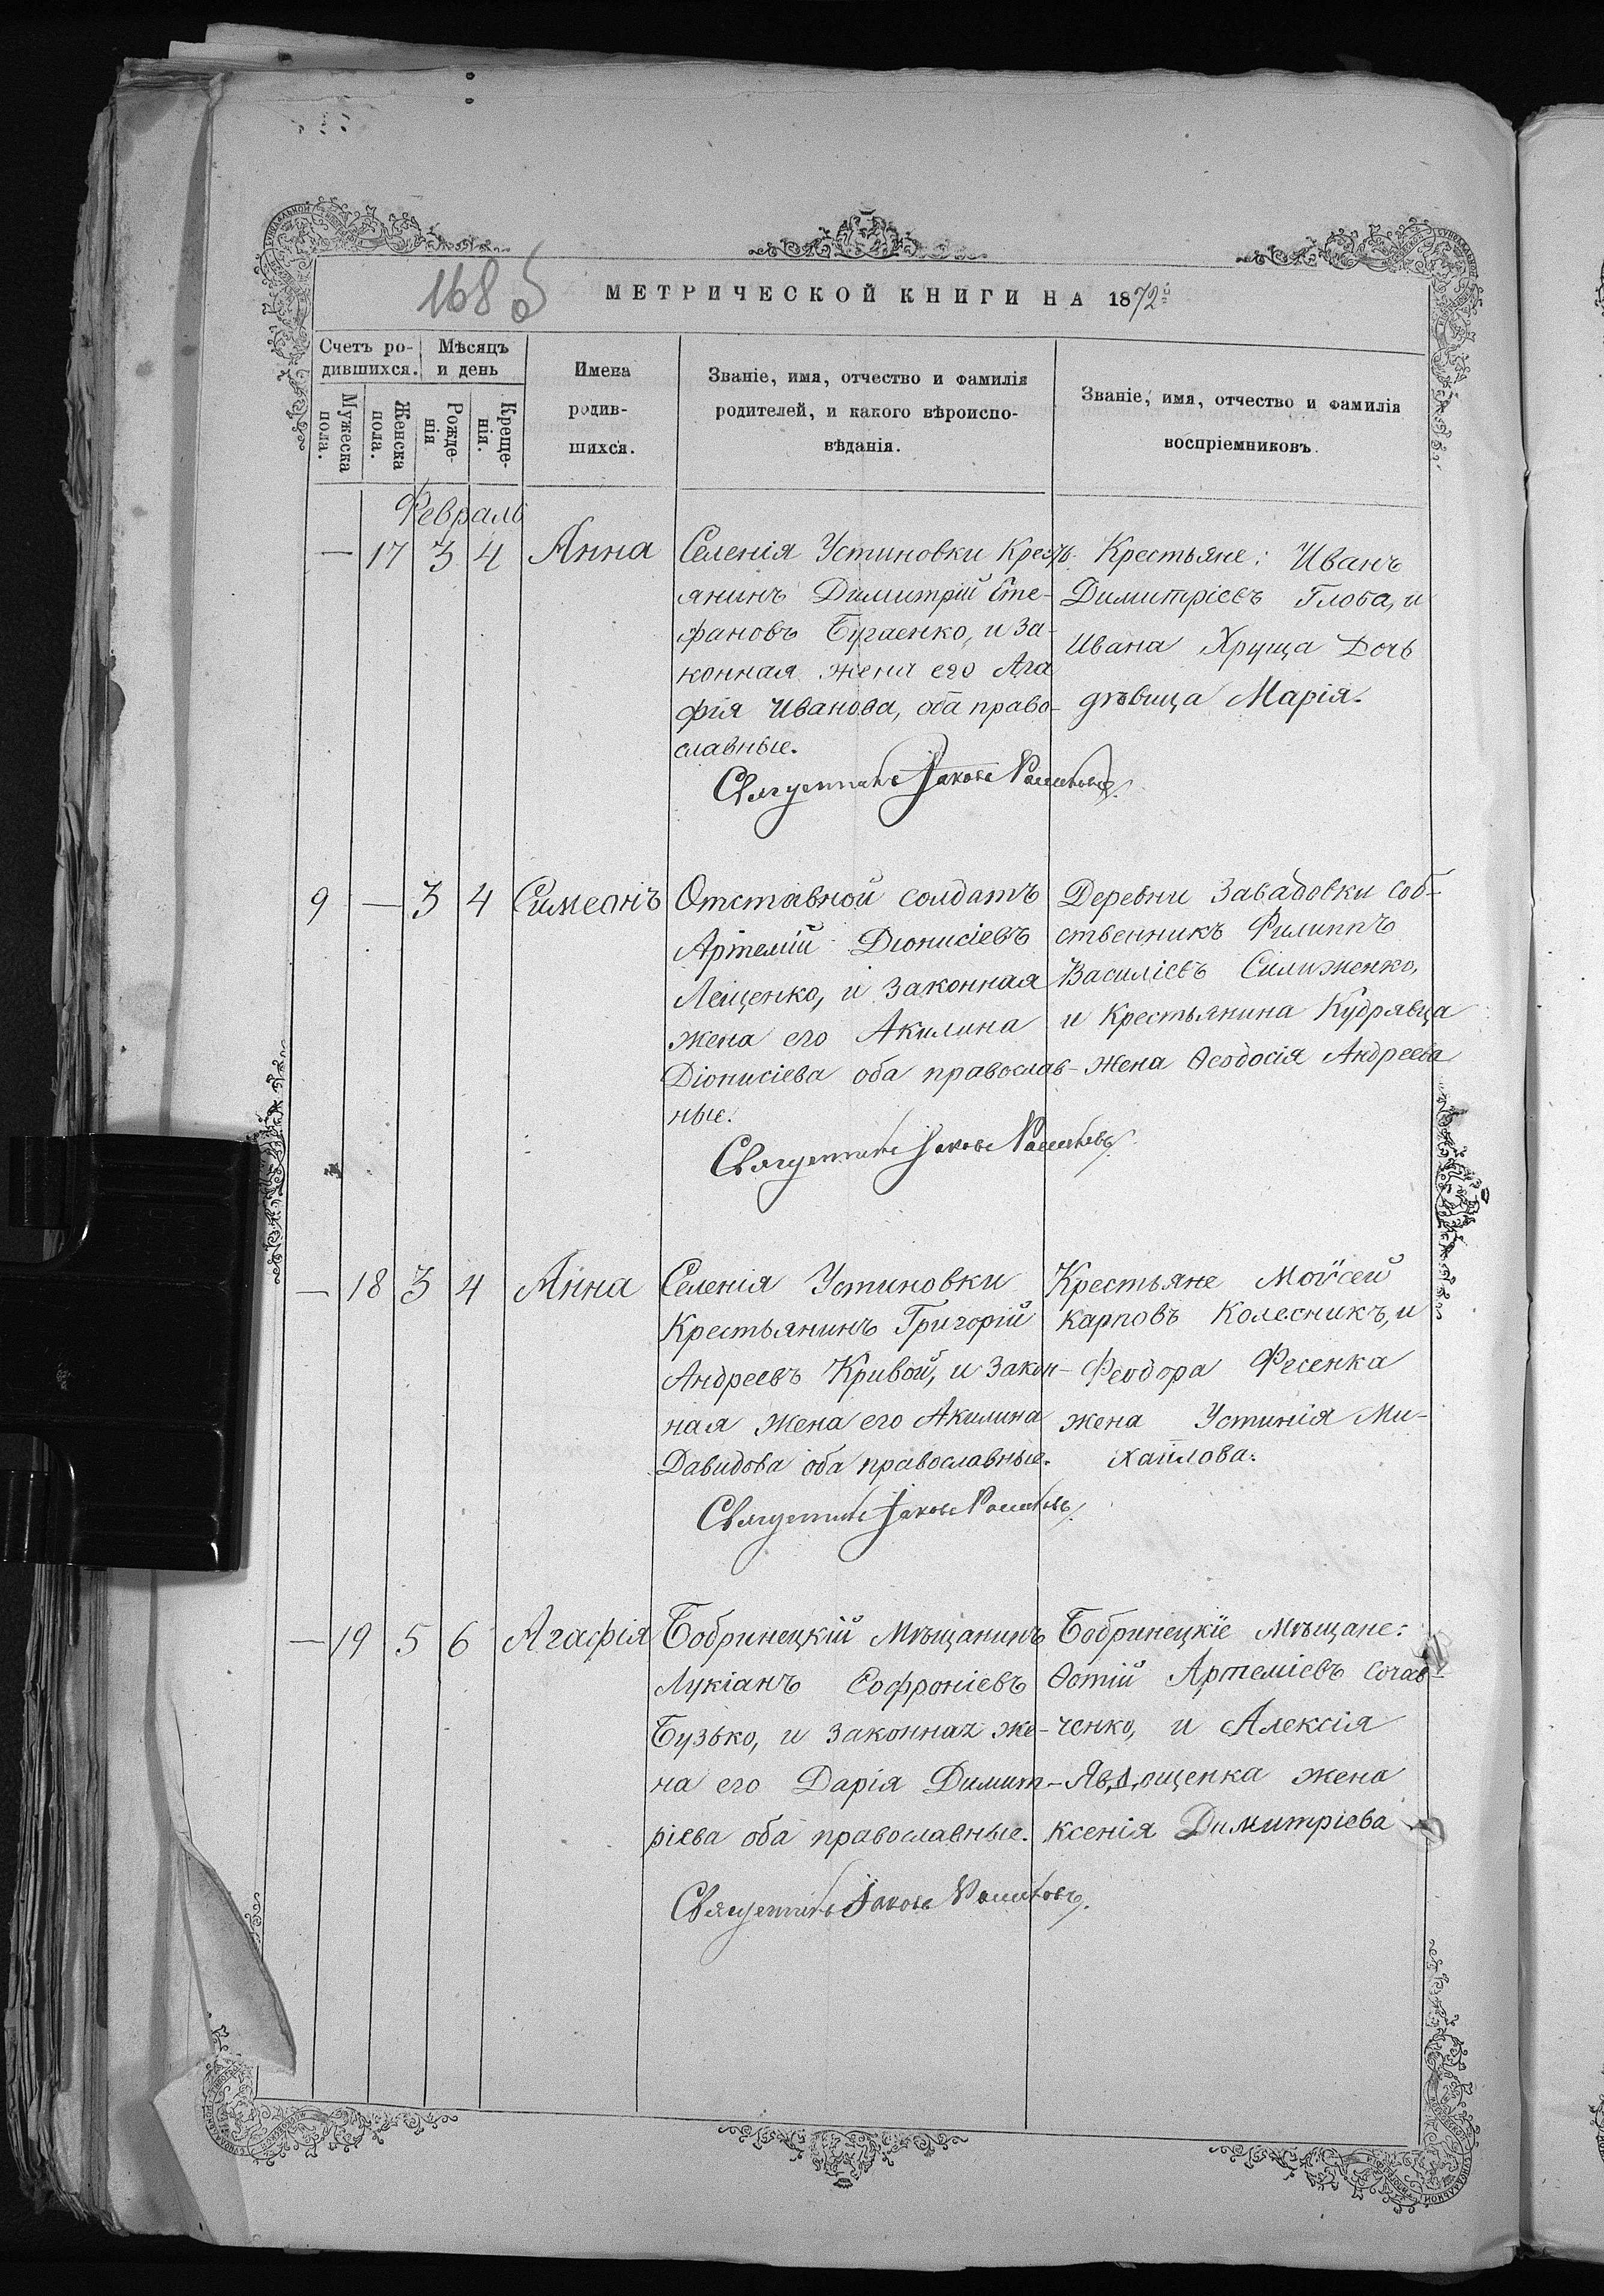 168 об
МЕТРИЧЕСКОЙ КНИГИ НА 1872й
Счетъ ро-
дившихся.
Мѣсяцъ
и день
Мужеска
пола.
Женска
пола.
Рожде-
нія
Креще-
нія.
Имена
родив-
шихся.
Званіе, имя, отчество и фамилія
родителей, и какого вѣроиспо-
вѣданія.
Званіе, имя, отчество и фамилія
воспріемниковъ.
Февраль
— 17 3 4 Анна
Селенія Устиновки Крестъ
янинъ Димитрій Сте-
фановъ Бугаенко, и за-
конная жена его Ага
фія Иванова, оба право-
славные.
Крестьяне: Иванъ
Димитріевъ Глоба, и
Ивана Хруща Дочь
дѣвица Марія.
Іаковъ
9 — 3 4 Симеонъ
Отставной солдатъ
Артемій Діонисіевъ
Лещенко, и законная
жена его Акилина
Діонисіева оба православ-
ные.
Деревни Завадовки соб-
ственникъ Филиппъ
Василіевъ Силиженко,
и Крестьянина Кудрявца
жена Ѳеодосія Андреева
Іаковъ
— 18 3 4 Анна
Селенія Устиновки
Крестьянинъ Григорій
Андреевъ Кривой, и Закон-
ная жена его Акилина
Давидова оба православные.
Крестьяне Моѵсей
Карповъ Колесникъ, и
Феодора Фесенка
жена Устинія Ми-
хаилова.
Іаковъ
— 19 5 6 Агафія
Бобринецкій Мѣщанинъ
Лукіанъ Софроніевъ
Бузько, и законная же-
на его Дарія Димит-
ріева оба православные.
Бобринецкіе Мѣщане:
Ѳотій Артеміевъ Сочав-
ченко, и Алексія
Явдощенка жена
Ксенія Димитріева
Іаковъ